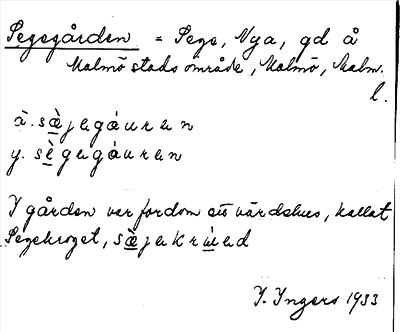 Segegården = Sege, Nya, gd å
Malmö stads område, Malmö, Malm.
l.
ä. sæ̀jegáuren
y. sè̱gegáuren
I gården var fordom ett värdshus, kallat
Segekroget, sæ̀jekrúed
I. Ingers 1933